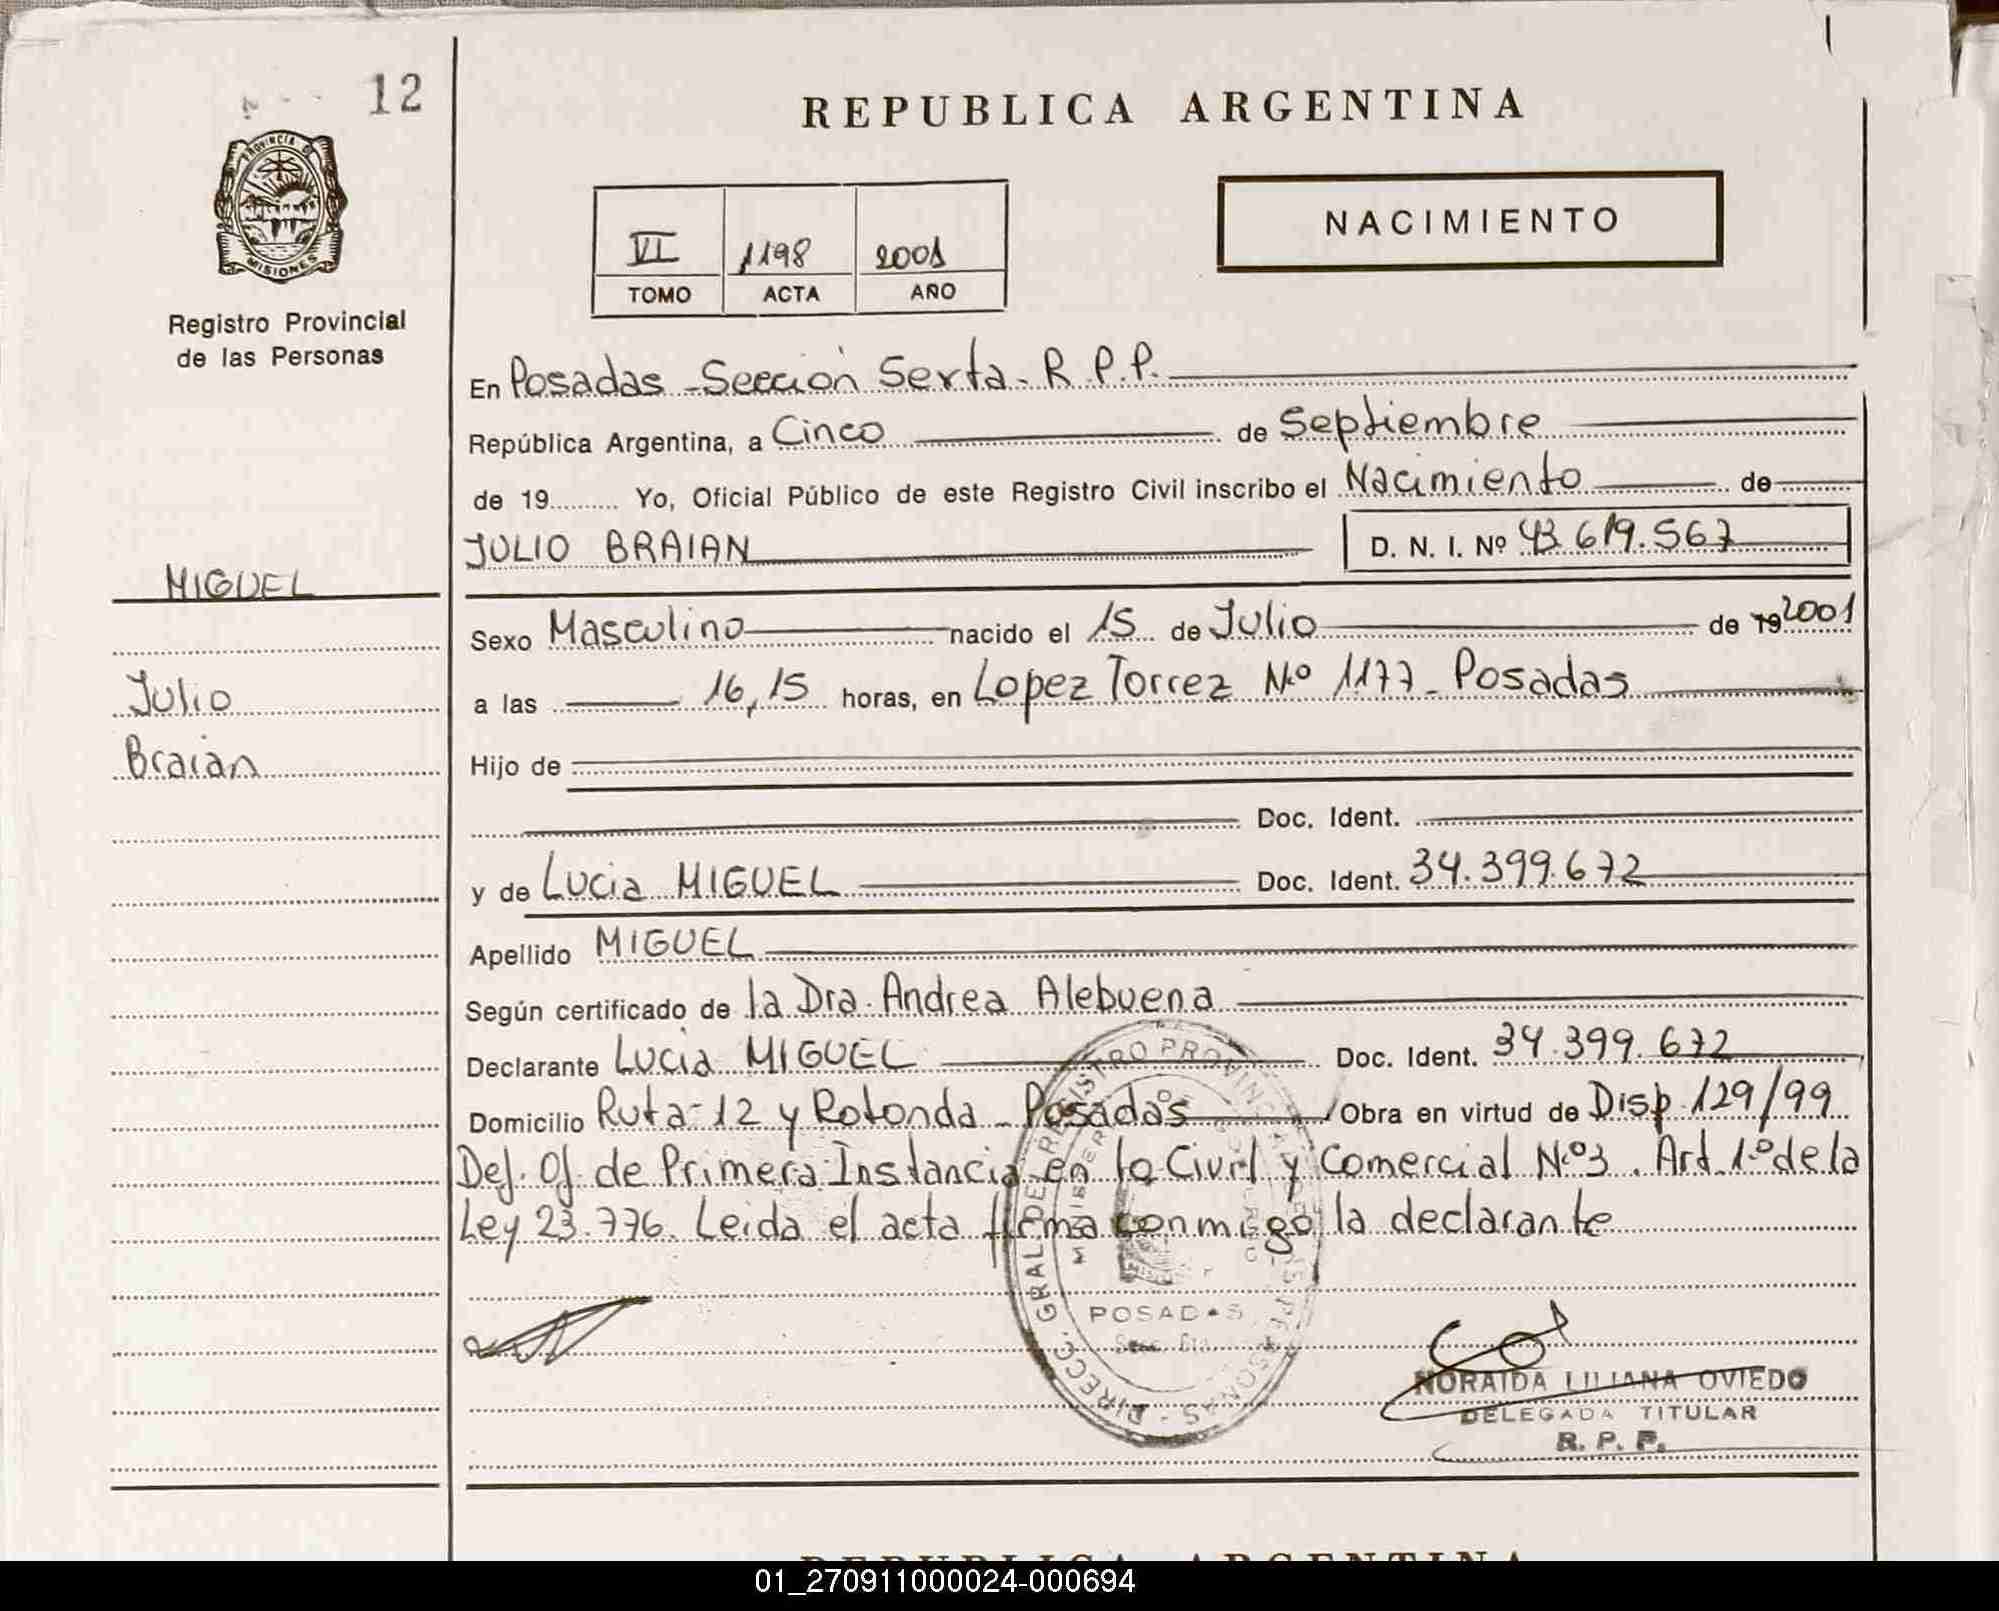 12
PROVINCIA DE
MISIONES
Registro Provincial
de las Personas
REPUBLICA ARGENTINA
NACIMIENTO
VI 1198 2001
TOMO ACTA AÑO
En Posadas - Sección Serta - R.P.P.
República Argentina, a Cinco de Septiembre
de 19 Yo, Oficial Público de este Registro Civil inscribo el Nacimiento de
JULIO BRAIAN D. N. I. Nº 43.619.567
MIGUEL
Sexo Masculino nacido el 15 de Julio de 19 2001
Julio
a las 16,15 horas, en Lopez Torrez Nº 1177 - Posadas
Braian
Hijo de
Doc. Ident.
y de Lucia MIGUEL Doc. Ident. 34.399.672
Apellido MIGUEL
Según certificado de la Dra. Andrea Alebuena
Declarante Lucia MIGUEL Doc. Ident. 34.399.672
Domicilio Ruta 12 y Rotonda - Posadas Obra en virtud de Disp 129/99
Def. Of. de Primera Instancia en lo Civil y Comercial Nº 3. Art. 1º de la
Ley 23.776. Leida el acta firma conmigo la declarante
DIRECC. GRAL. DE REGISTRO PROVINCIAL DE PERSONAS
POSADAS
NORAIDA LILIANA OVIEDO
DELEGADA TITULAR
R. P. P.
REPUBLICA ARGENTINA
01_270911000024-000694